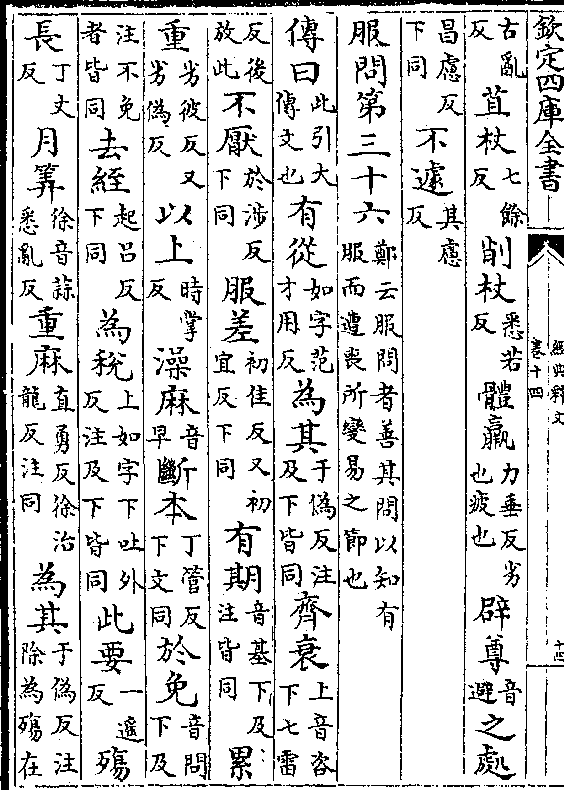 欽定四庫全書
經典釋文
卷十四
十四
古亂反苴杖七餘反削杖悉若反體羸力垂反劣也疲也辟尊音避之處
昌慮反下同不遽其慮反
服問第三十六鄭云服問者善其問以知有服而遭喪所變易之節也
傳曰此引大傳文也有從如字范才用反為其于偽反注及下皆同齊衰上音咨下七雷
反後放此不厭於涉反下同服差初佳反又初宜反下同有期音基下及注皆同累
重劣彼反又劣偽反以上時掌反澡麻音早斷本丁管反下文同於免音問下及
注不免者皆同去絰起呂反下同為稅上如字下吐外反注及下皆同此要一遥反殤
長丁丈反月筭徐音蒜悉亂反重麻直勇反徐治龍反注同為其于偽反注除為殤在